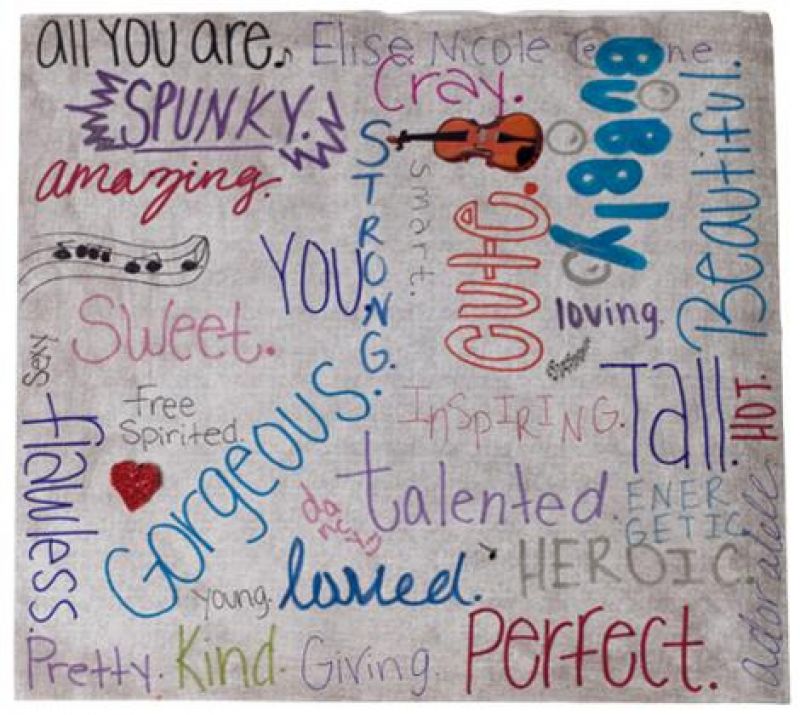 all YOU are.
Elise Nicole
Cray.
BUBBly
Beautiful.
SPUNKY.
STRONG.
smart.
cute.
amazing.
YOU.
loving.
Sweet.
sexy
free
Spirited.
InSpIRING.
Tall.
HOT.
flawless.
Gorgeous.
talented.
ENER
GETIC.
HEROIC.
adorable
young.
loved.
Pretty. Kind. Giving. Perfect.